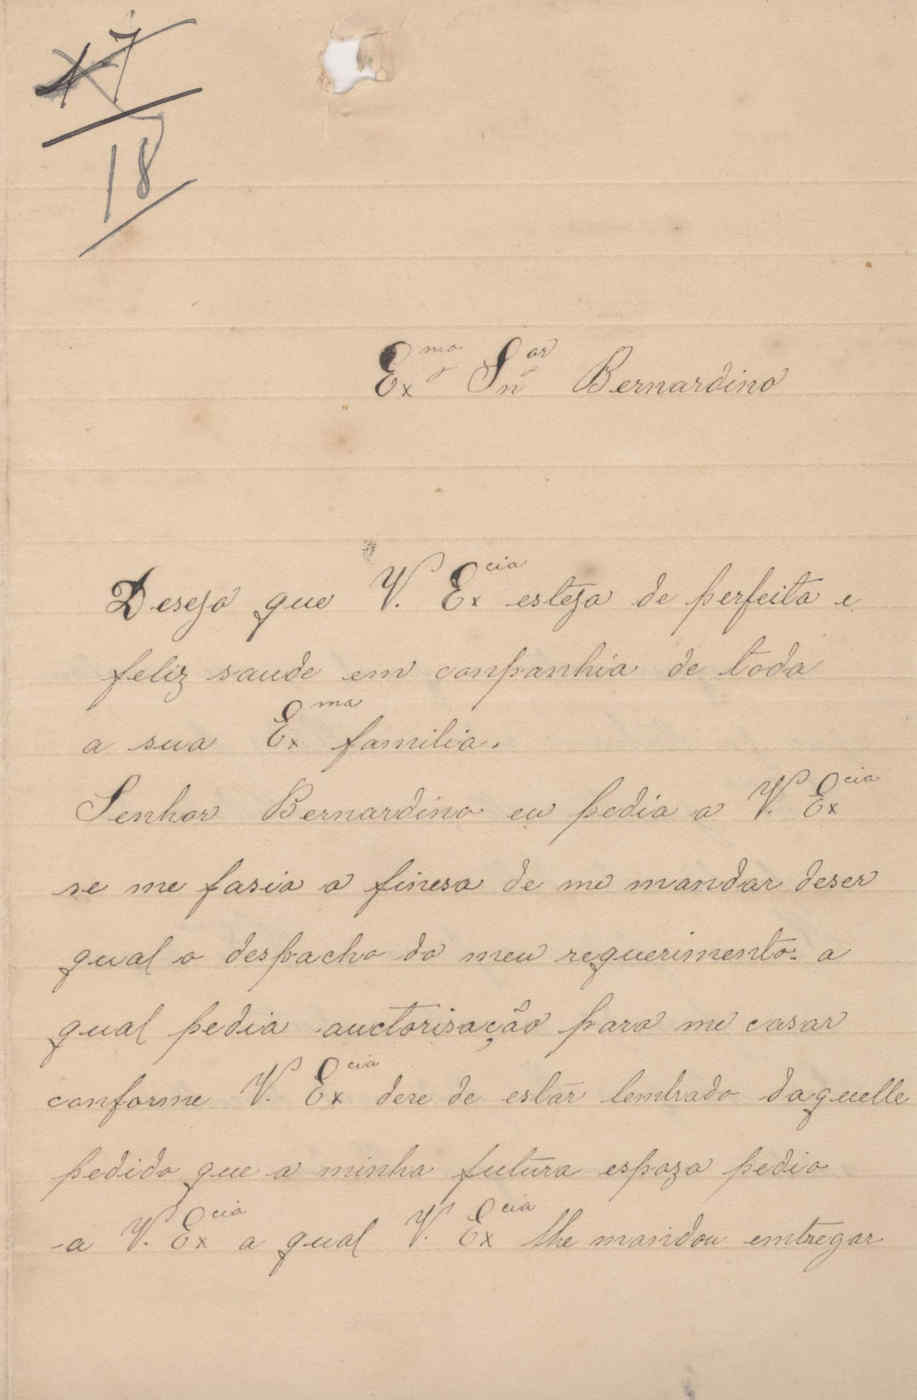 17
18
Exmo Snor Bernardino
Desejo que V. Excia esteja de perfeita e
feliz saude em conpanhia de toda
a sua Exma familia.
Senhor Bernardino eu pedia a V. Excia
se me fasia a finesa de me mandar deser
qual o despacho do meu requerimento. a
qual pedia auctorisação para me casar
conforme V. Excia deve de estar lembrado daquelle
pedido que a minha futura espoza pedio
a V. Excia a qual V. Excia lhe mandou emtregar